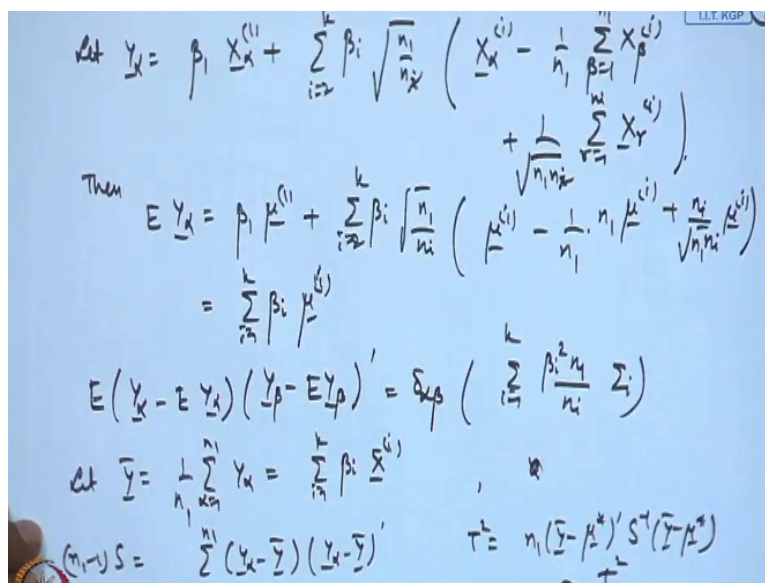 I.I.T. KGP
Let Y_α = β_1 X_α^{(1)} + \sum_{i=2}^{k} β_i \sqrt{\frac{n_1}{n_i}} ( X_α^{(i)} - \frac{1}{n_1} \sum_{β=1}^{n_1} X_β^{(i)}
+ \frac{1}{\sqrt{n_1 n_i}} \sum_{γ=1}^{n_i} X_γ^{(i)} ).
Then
E Y_α = β_1 μ^{(1)} + \sum_{i=2}^{k} β_i \sqrt{\frac{n_1}{n_i}} ( μ^{(i)} - \frac{1}{n_1} · n_1 μ^{(i)} + \frac{n_i}{\sqrt{n_1 n_i}} μ^{(i)} )
= \sum_{i=1}^{k} β_i μ^{(i)}
E(Y_α - E Y_α)(Y_β - E Y_β)' = δ_{αβ} ( \sum_{i=1}^{k} \frac{β_i^2 n_1}{n_i} Σ_i )
Let \bar{Y} = \frac{1}{n_1} \sum_{α=1}^{n_1} Y_α = \sum_{i=1}^{k} β_i \bar{X}^{(i)} ,
(n_1-1) S = \sum_{α=1}^{n_1} (Y_α - \bar{Y})(Y_α - \bar{Y})' T^2 = n_1 (\bar{Y} - μ^*)' S^{-1} (\bar{Y} - μ^*)
T^2